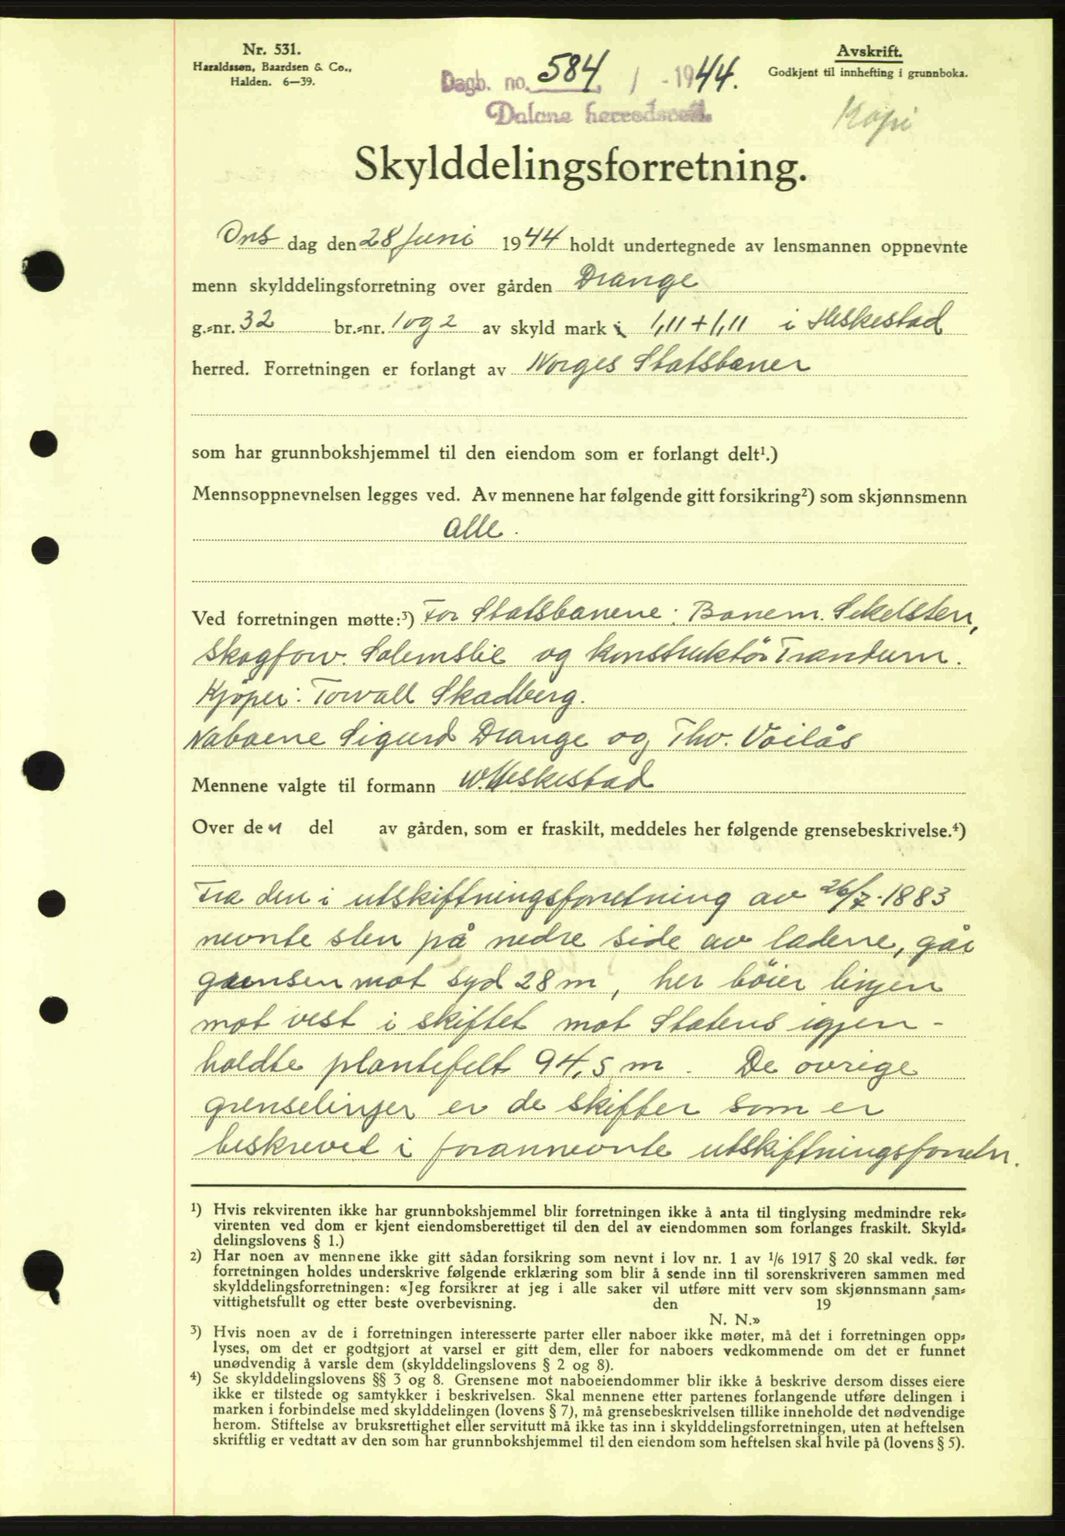 Nr. 531.
Haraldssøn, Baardsen & Co.,
Halden. 6—39.
Dagb. no. 584 / - 1944.
Dalane herredsrett.
Avskrift.
Godkjent til innhefting i grunnboka.
Kopi
Skylddelingsforretning.
Ons dag den 28 juni 1944 holdt undertegnede av lensmannen oppnevnte
menn skylddelingsforretning over gården Drange
g.-nr. 32 br.-nr. 1 og 2 av skyld mark 1,11 + 1,11 i Heskestad
herred. Forretningen er forlangt av Norges Statsbaner
som har grunnbokshjemmel til den eiendom som er forlangt delt¹.)
Mennsoppnevnelsen legges ved. Av mennene har følgende gitt forsikring²) som skjønnsmenn
alle.
Ved forretningen møtte:³) For Statsbanene: Banem. Sekelsten,
Skogforv. Solemslie og konstruktör Trandum.
Kjöper: Torvall Skadberg.
Naboene Sigurd Drange og Thv. Voilås
Mennene valgte til formann W. Heskestad
Over den del av gården, som er fraskilt, meddeles her følgende grensebeskrivelse.⁴)
Fra den i utskiftningsforretning av 26/7-1883
nevnte sten på nedre side av ladene, går
grensen mot syd 28 m, her böier linjen
mot vest i skiftet mot Statens igjen-
holdte plantefelt 94,5 m. De övrige
grenselinjer er de skifter som er
beskrevet i forannevnte utskiftningsforretn.
¹) Hvis rekvirenten ikke har grunnbokshjemmel blir forretningen ikke å anta til tinglysing medmindre rek-
virenten ved dom er kjent eiendomsberettiget til den del av eiendommen som forlanges fraskilt. Skyld-
delingslovens § 1.)
²) Har noen av mennene ikke gitt sådan forsikring som nevnt i lov nr. 1 av 1/6 1917 § 20 skal vedk. før
forretningen holdes underskrive følgende erklæring som blir å sende inn til sorenskriveren sammen med
skylddelingsforretningen: «Jeg forsikrer at jeg i alle saker vil utføre mitt verv som skjønnsmann sam-
vittighetsfullt og etter beste overbevisning. den 19
N. N.»
³) Hvis noen av de i forretningen interesserte parter eller naboer ikke møter, må det i forretningen opp-
lyses, om det er godtgjort at varsel er gitt dem, eller for naboers vedkommende om det er funnet
unødvendig å varsle dem (skylddelingslovens § 2 og 8).
⁴) Se skylddelingslovens §§ 3 og 8. Grensene mot naboeiendommer blir ikke å beskrive dersom disses eiere
ikke er tilstede og samtykker i beskrivelsen. Skal mennene etter partenes forlangende utføre delingen i
marken i forbindelse med skylddelingen (lovens § 7), må grensebeskrivelsen tillike inneholde det nødvendige
herom. Stiftelse av bruksrettighet eller servitutt må ikke tas inn i skylddelingsforretningen, uten at heftelsen
skriftlig er vedtatt av den som har grunnbokshjemmel til den eiendom som heftelsen skal hvile på (lovens § 5).